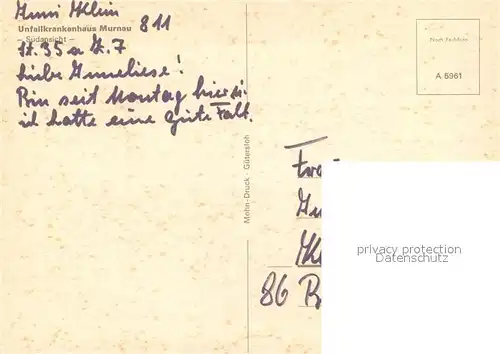 Anni Klein
811
Unfallkrankenhaus Murnau
– Südansicht –
St. 35 a Z. 7
Liebe Anneliese!
Bin seit Montag hier u.
ich hatte eine gute Fahrt.
Mohn-Druck · Gütersloh
A 5961
86 B
privacy protection
Datenschutz